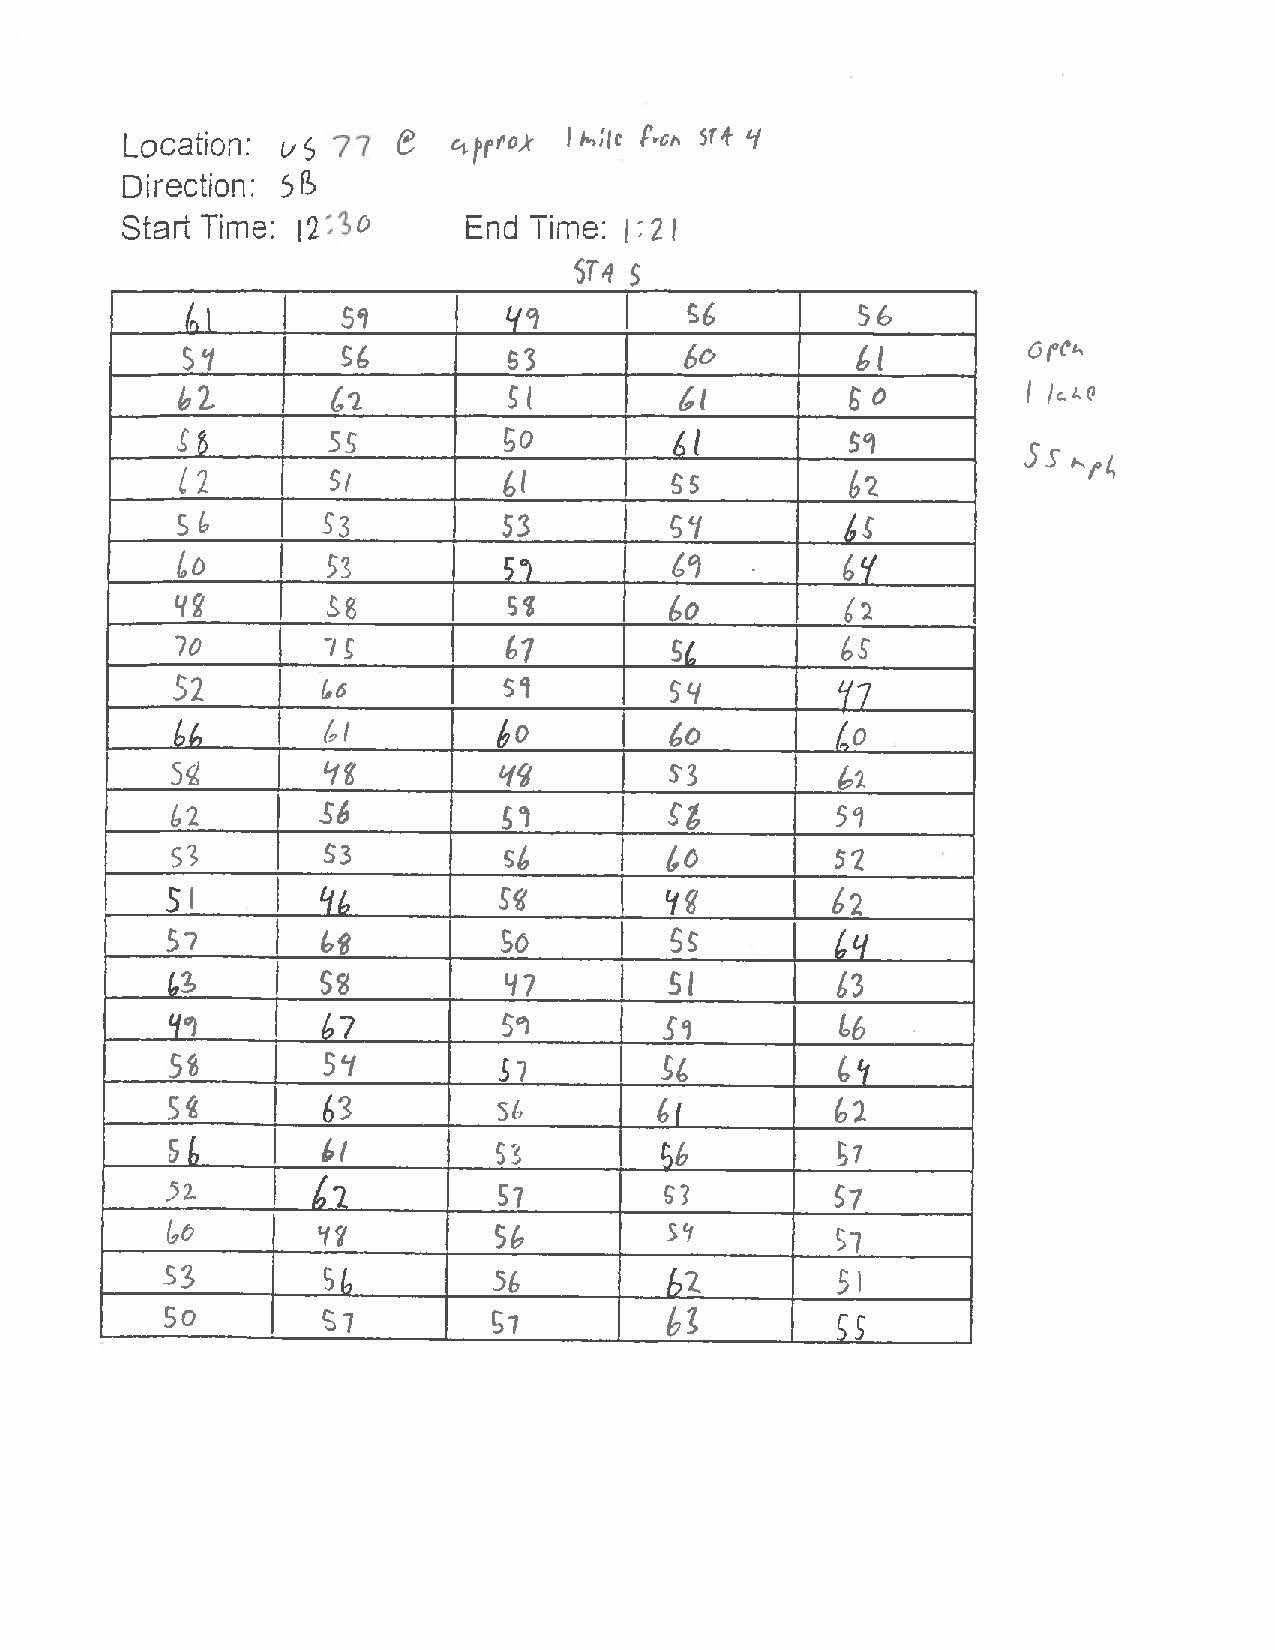 Location: US 77 @ approx 1 mile from STA 4
Direction: SB
Start Time: 12:30 End Time: 1:21
STA 5
61 59 49 56 56
54 56 53 60 61
open
62 62 51 61 50
1 lane
58 55 50 61 59
55 mph
62 51 61 55 62
56 53 53 54 65
60 53 59 69 64
48 58 58 60 62
70 75 67 56 65
52 60 59 54 47
66 61 60 60 60
58 48 48 53 62
62 56 59 58 59
53 53 56 60 52
51 46 58 48 62
57 68 50 55 64
63 58 47 51 63
49 67 59 59 66
58 54 57 56 64
58 63 56 61 62
56 61 53 56 57
52 62 57 53 57
60 48 56 54 57
53 56 56 62 51
50 57 57 63 55